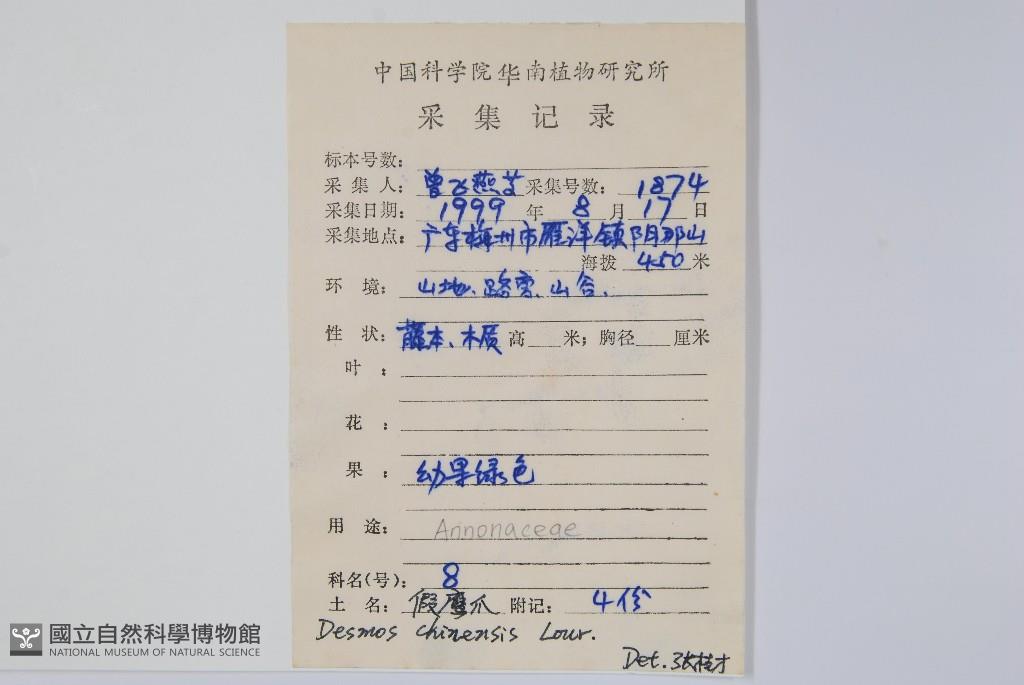 中国科学院华南植物研究所
采集记录
标本号数:
采集人: 曾飞燕等 采集号数: 1874
采集日期: 1999 年 8 月 17 日
采集地点: 广东梅州市雁洋镇阴那山
海拨 450 米
环境: 山地、路旁、山谷、
性状: 藤本、木质 高 米; 胸径 厘米
叶:
花:
果: 幼果绿色
用途: Annonaceae
科名(号): 8
土名: 假鹰爪 附记: 4份
Desmos chinensis Lour.
Det. 张桂才
國立自然科學博物館
NATIONAL MUSEUM OF NATURAL SCIENCE